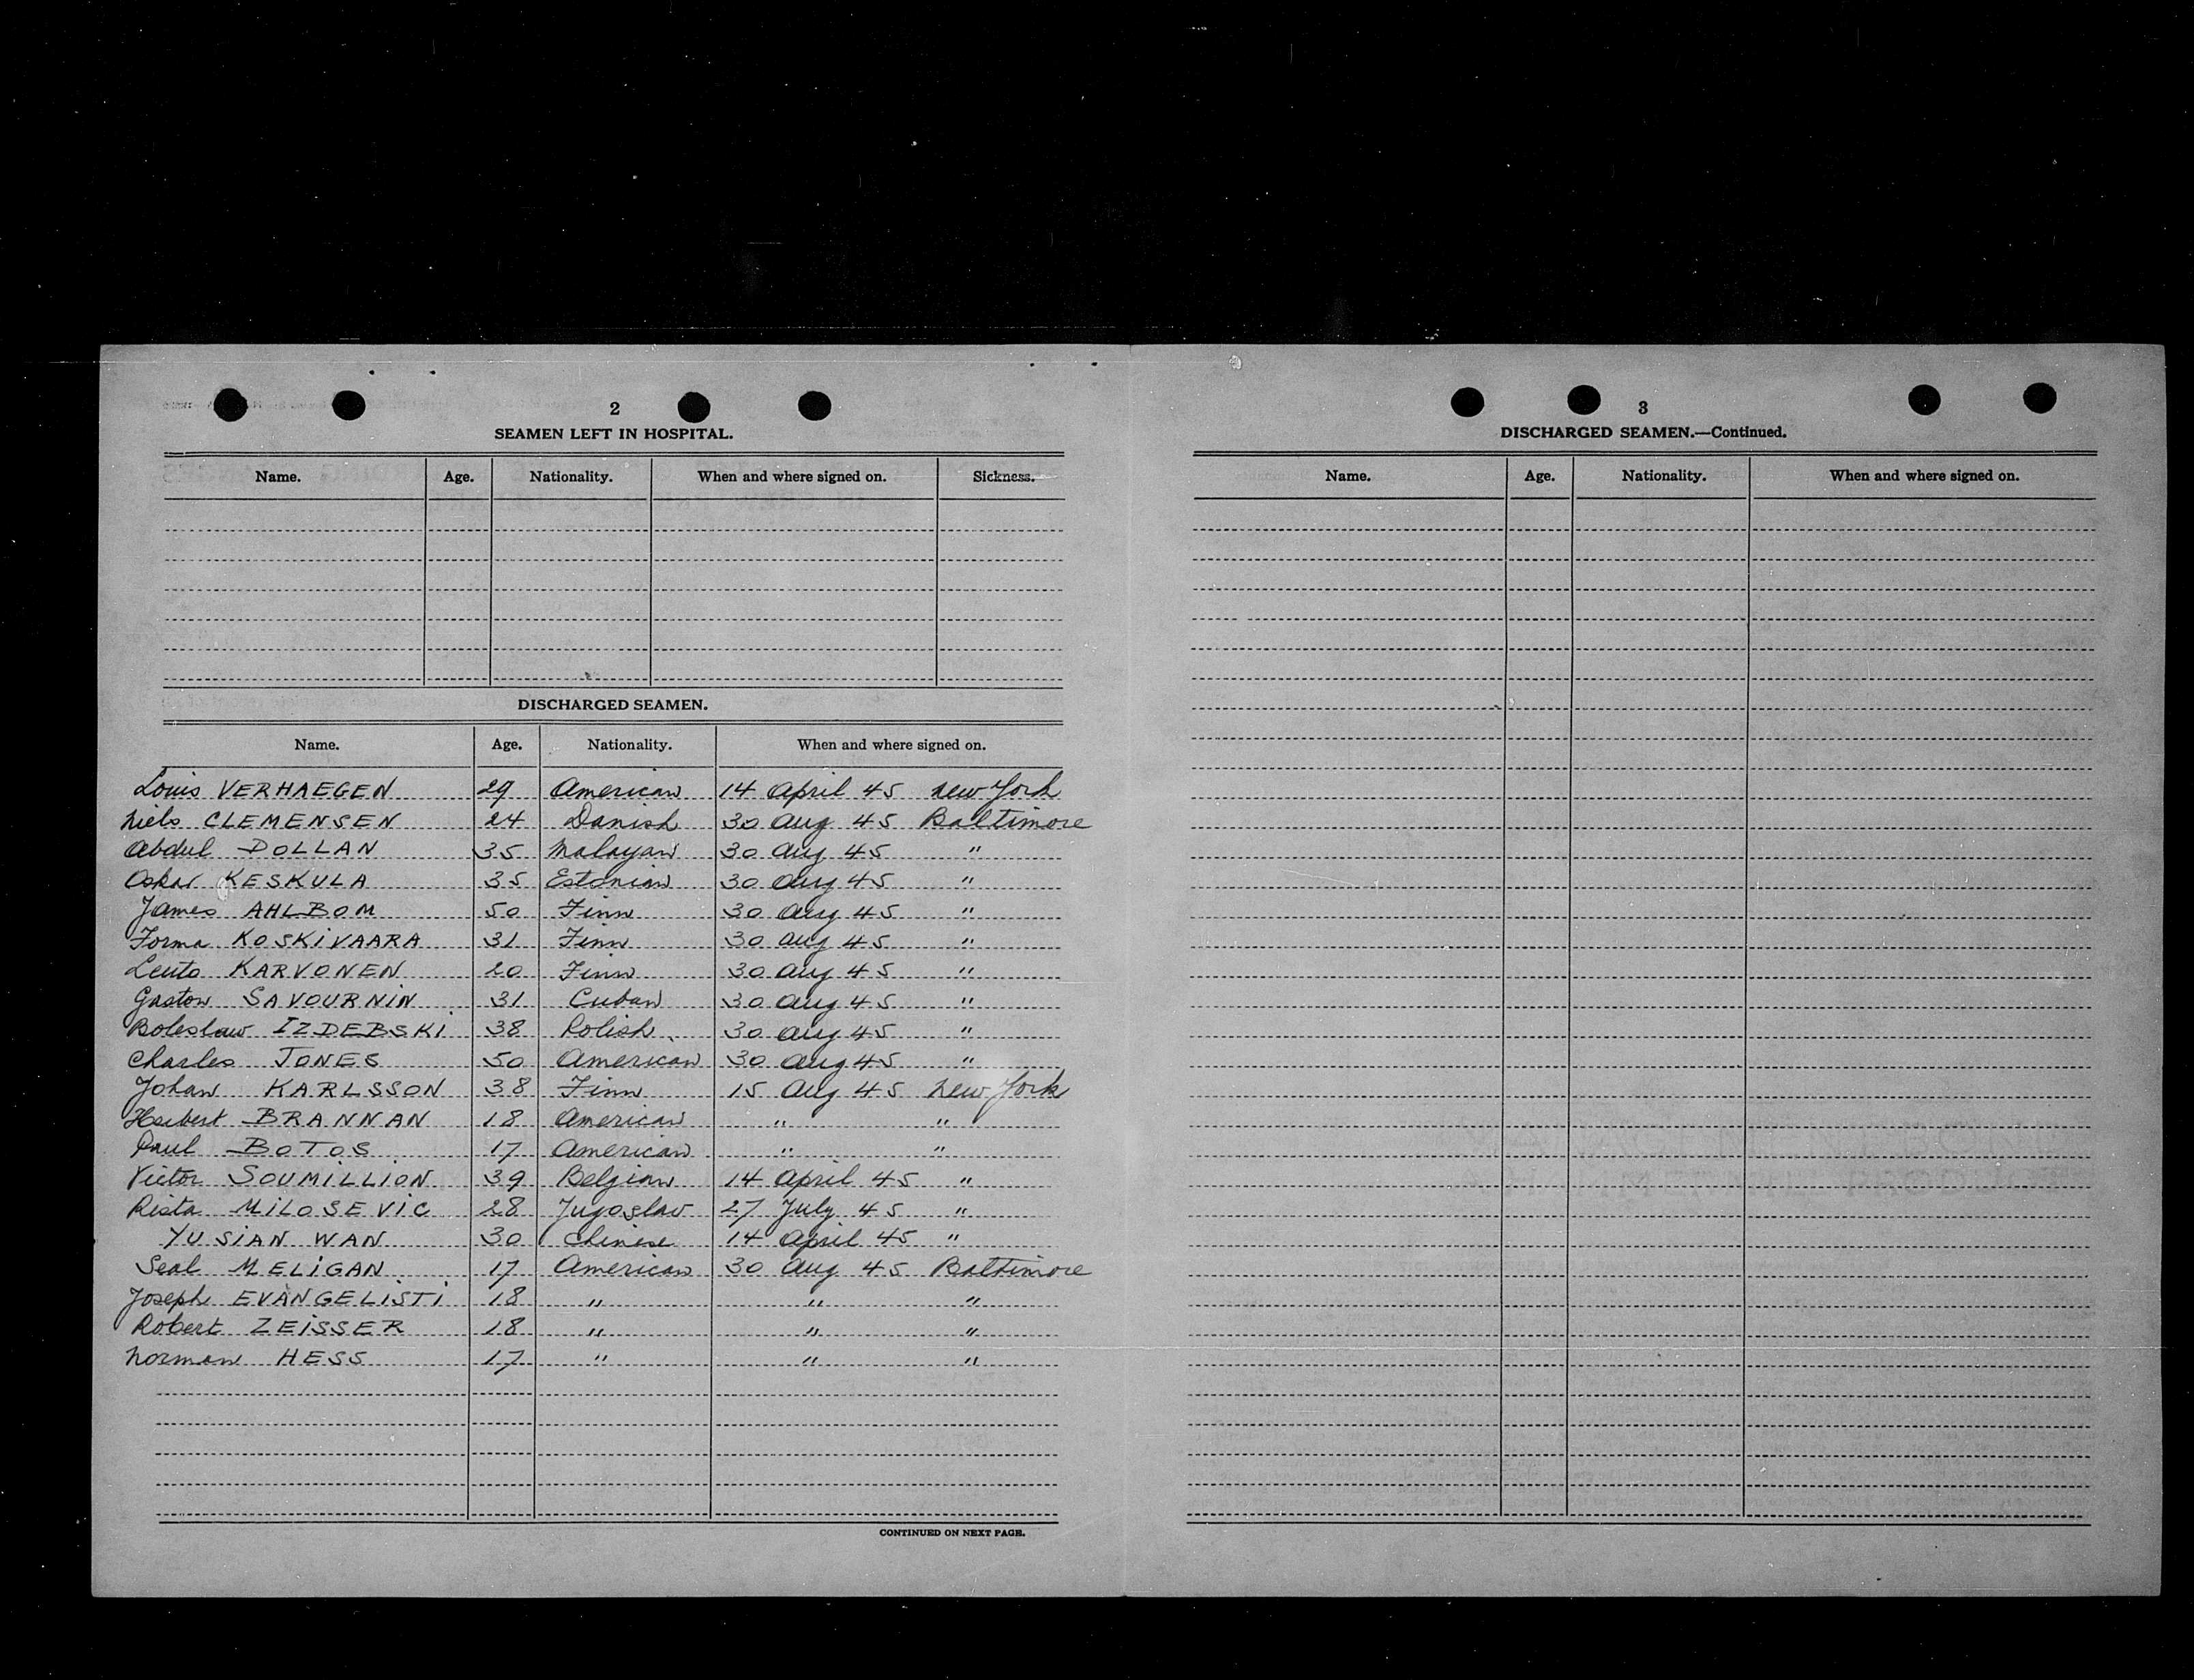 2
SEAMEN LEFT IN HOSPITAL.
Name. Age. Nationality. When and where signed on. Sickness.
DISCHARGED SEAMEN.
Name. Age. Nationality. When and where signed on.
Louis VERHAEGEN 29 American 14 April 45 New York
Niels CLEMENSEN 24 Danish 30 Aug 45 Baltimore
Abdul DOLLAN 35 Malayan 30 Aug 45 "
Oskar KESKULA 35 Estonian 30 Aug 45 "
James AHLBOM 50 Finn 30 Aug 45 "
Jorma KOSKIVAARA 31 Finn 30 Aug 45 "
KARVONEN 20 Finn 30 Aug 45 "
Gaston SAVOURNIN 31 Cuban 30 Aug 45 "
Boleslaw IZDEBSKI 38 Polish 30 Aug 45 "
Charles JONES 50 American 30 Aug 45 "
Johan KARLSSON 38 Finn 15 Aug 45 New York
Herbert BRANNAN 18 American " "
Paul BOTOS 17 American " "
Victor SOUMILLION 39 Belgian 14 April 45 "
Rista MILOSEVIC 28 Jugoslav 27 July 45 "
YU SIAN WAN 30 Chinese 14 April 45 "
Seal MELIGAN 17 American 30 Aug 45 Baltimore
Joseph EVANGELISTI 18 " " "
Robert ZEISSER 18 " " "
Norman HESS 17 " " "
CONTINUED ON NEXT PAGE.
3
DISCHARGED SEAMEN.—Continued.
Name. Age. Nationality. When and where signed on.